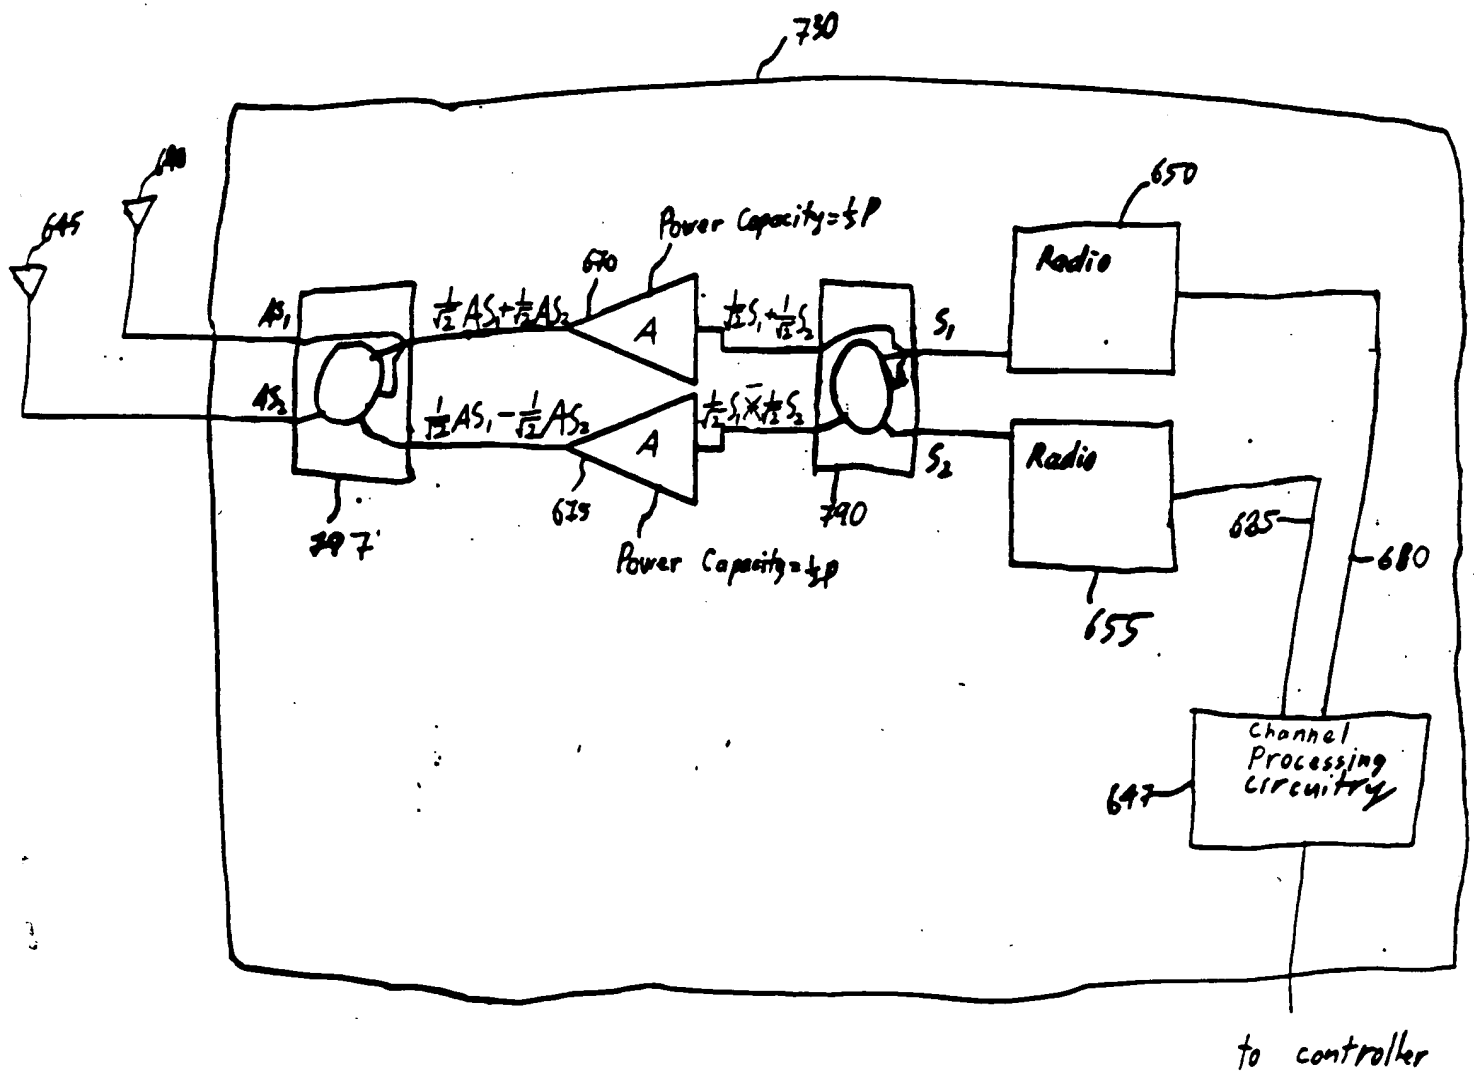 730
640
645
650
Power Capacity=½P
Radio
670
AS₁
1/√2 AS₁+1/√2 AS₂
A
1/√2 S₁+1/√2 S₂
S₁
AS₂
1/√2 AS₁-1/√2 AS₂
A
S₂
Radio
675
790
797
685
Power Capacity=½P
680
655
Channel
Processing
Circuitry
647
to controller